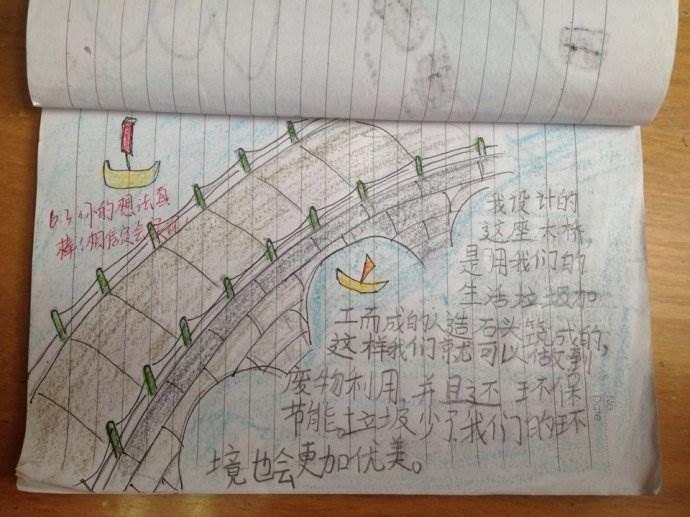 6.3你的想法真
棒！相信定会
我设计的
这座大桥，
是用我们的
生活垃圾加
工而成的人造石头筑成的，
这样我们就可以做到
废物利用，并且还环保
节能。垃圾少了我们的环
境也会更加优美。